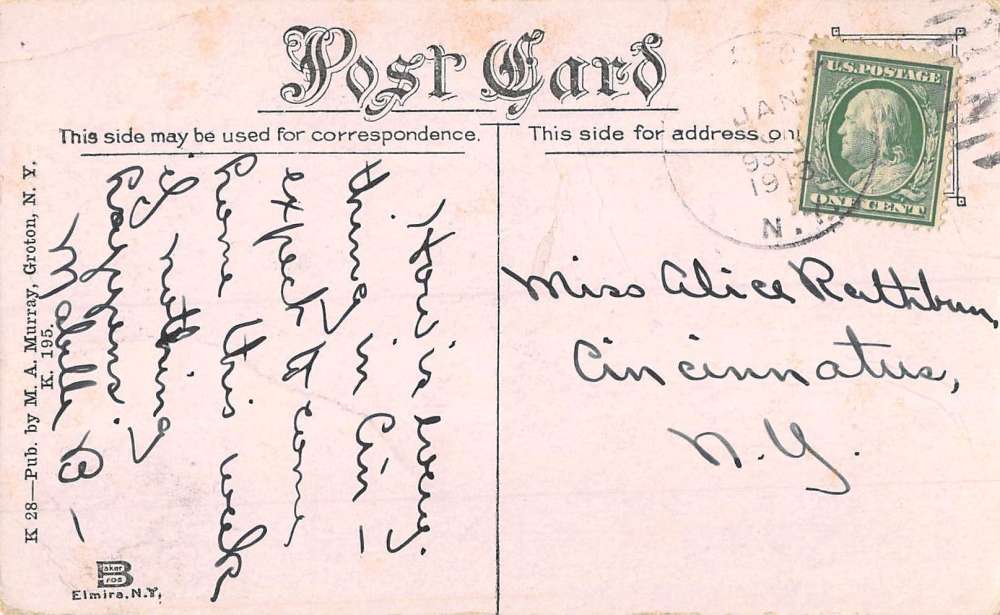 Post Card
This side may be used for correspondence.
This side for address on
U.S. POSTAGE
ONE CENT
JAN
1913
N.Y.
How is every
thing in Cin -
expect to come
home this week
if nothing
happens.
Mabelle B -
Miss Alice Rathbun,
Cincinnatus,
N.Y.
K 28—Pub. by M. A. Murray, Groton, N. Y.
K. 195.
Baker
Bros
Elmira, N.Y.